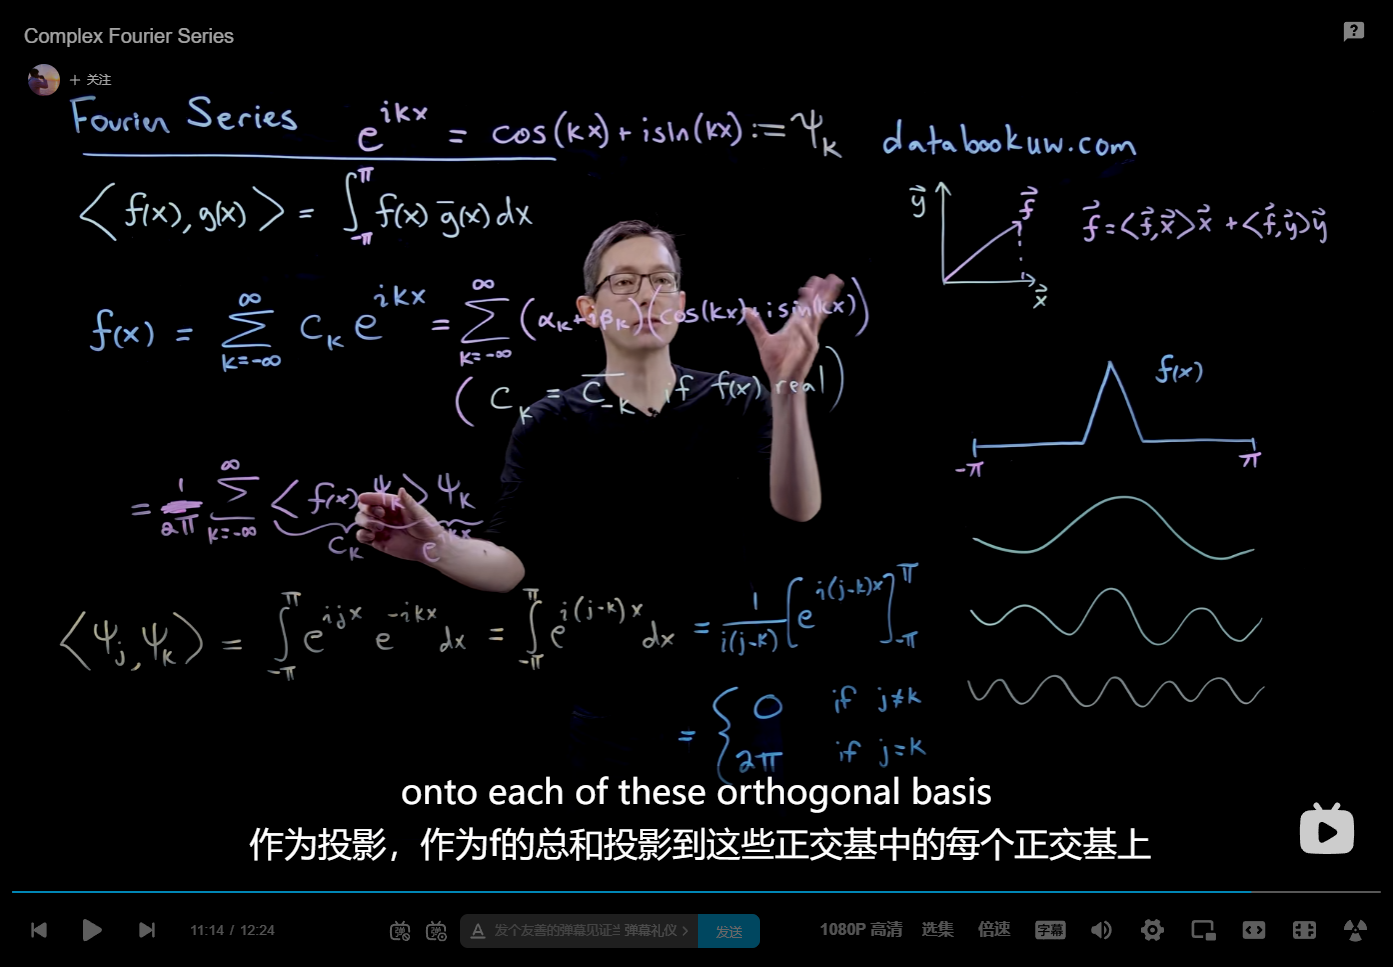 Complex Fourier Series
+ 关注
Fourier Series e^{ikx} = cos(kx) + isin(kx) := ψ_k
databookuw.com
⟨f(x), g(x)⟩ = ∫_{-π}^{π} f(x) \bar{g}(x) dx
\vec{y} \vec{f} \vec{x}
\vec{f} = ⟨\vec{f},\vec{x}⟩\vec{x} + ⟨\vec{f},\vec{y}⟩\vec{y}
f(x) = Σ_{k=-∞}^{∞} C_k e^{ikx} = Σ_{k=-∞}^{∞} (α_k + iβ_k)(cos(kx) + isin(kx))
(C_k = \overline{C_{-k}} if f(x) real)
f(x)
-π π
= 1/2π Σ_{k=-∞}^{∞} ⟨f(x), ψ_k⟩ ψ_k
C_k e^{ikx}
⟨ψ_j, ψ_k⟩ = ∫_{-π}^{π} e^{ijx} e^{-ikx} dx = ∫_{-π}^{π} e^{i(j-k)x} dx = 1/i(j-k) [e^{i(j-k)x}]_{-π}^{π}
= { 0 if j≠k
2π if j=k
onto each of these orthogonal basis
作为投影，作为f的总和投影到这些正交基中的每个正交基上
11:14 / 12:24
弹
弹
A 发个友善的弹幕见证 弹幕礼仪 >
发送
1080P 高清
选集
倍速
字幕